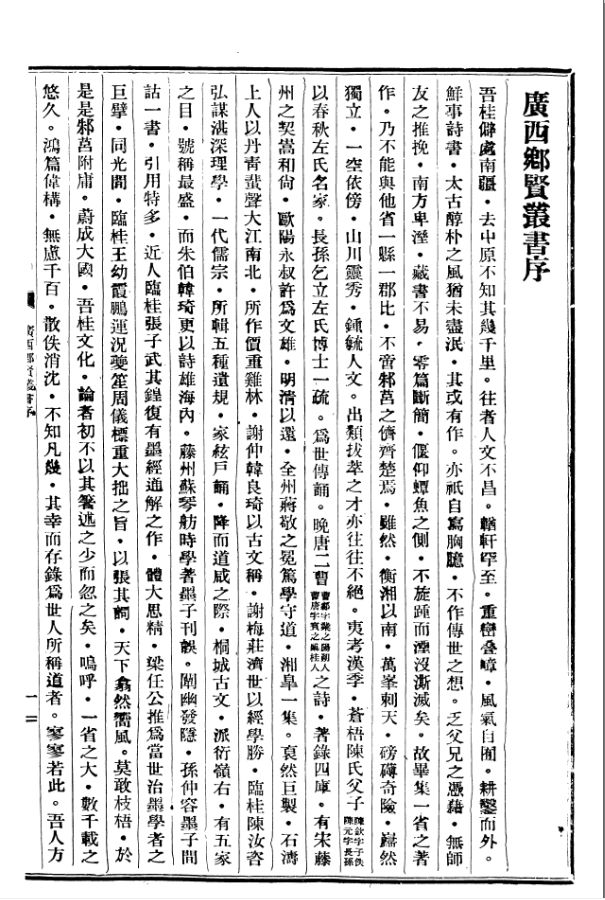 廣西鄉賢叢書序
吾桂僻處南疆・去中原不知其幾千里。往者人文不昌。輶軒罕至・重巒叠嶂・風氣自囿・耕鑿而外。
鮮事詩書・太古醇朴之風猶未盡泯・其或有作。亦祇自寫胸臆・不作傳世之想。乏父兄之憑藉・無師
友之推挽・南方卑溼・藏書不易・零篇斷簡・偃仰蟫魚之側・不旋踵而湮沒澌滅矣・故畢集一省之著
作・乃不能與他省一縣一郡比・不啻邾莒之儕齊楚焉・雖然・衡湘以南・萬峯刺天・磅礴奇險・巋然
獨立・一空依傍・山川靈秀・鍾毓人文。出類拔萃之才亦往往不絕。夷考漢季・蒼梧陳氏父子陳欽字子佚陳元字長孫
以春秋左氏名家。長孫乞立左氏博士一疏。爲世傳誦。晚唐二曹曹鄴字業之陽朔人曹唐字賓之臨桂人之詩・著錄四庫・有宋藤
州之契嵩和尙・歐陽永叔許爲文雄・明清以還・全州蔣敬之冕篤學守道・湘臯一集。裒然巨製・石濤
上人以丹靑蜚聲大江南北・所作價重雞林・謝仲韓良琦以古文稱・謝梅莊濟世以經學勝・臨桂陳汝咨
弘謀湛深理學・一代儒宗・所輯五種遺規・家絃戶誦・降而道咸之際・桐城古文・派衍嶺右・有五家
之目・號稱最盛・而朱伯韓琦更以詩雄海內・藤州蘇琴舫時學著墨子刊誤。闡幽發隱・孫仲容墨子閒
詁一書・引用特多・近人臨桂張子武其鍠復有墨經通解之作・體大思精・梁任公推爲當世治墨學者之
巨擘・同光間・臨桂王幼霞鵬運况夔笙周儀標重大拙之旨・以張其詞・天下翕然嚮風。莫敢枝梧・於
是是邾莒附庸・蔚成大國・吾桂文化・論者初不以其箸述之少而忽之矣・嗚呼・一省之大・數千載之
悠久。鴻篇偉構・無慮千百・散佚消沈・不知凡幾・其幸而存錄爲世人所稱道者。寥寥若此。吾人方
廣西鄉賢叢書序
一